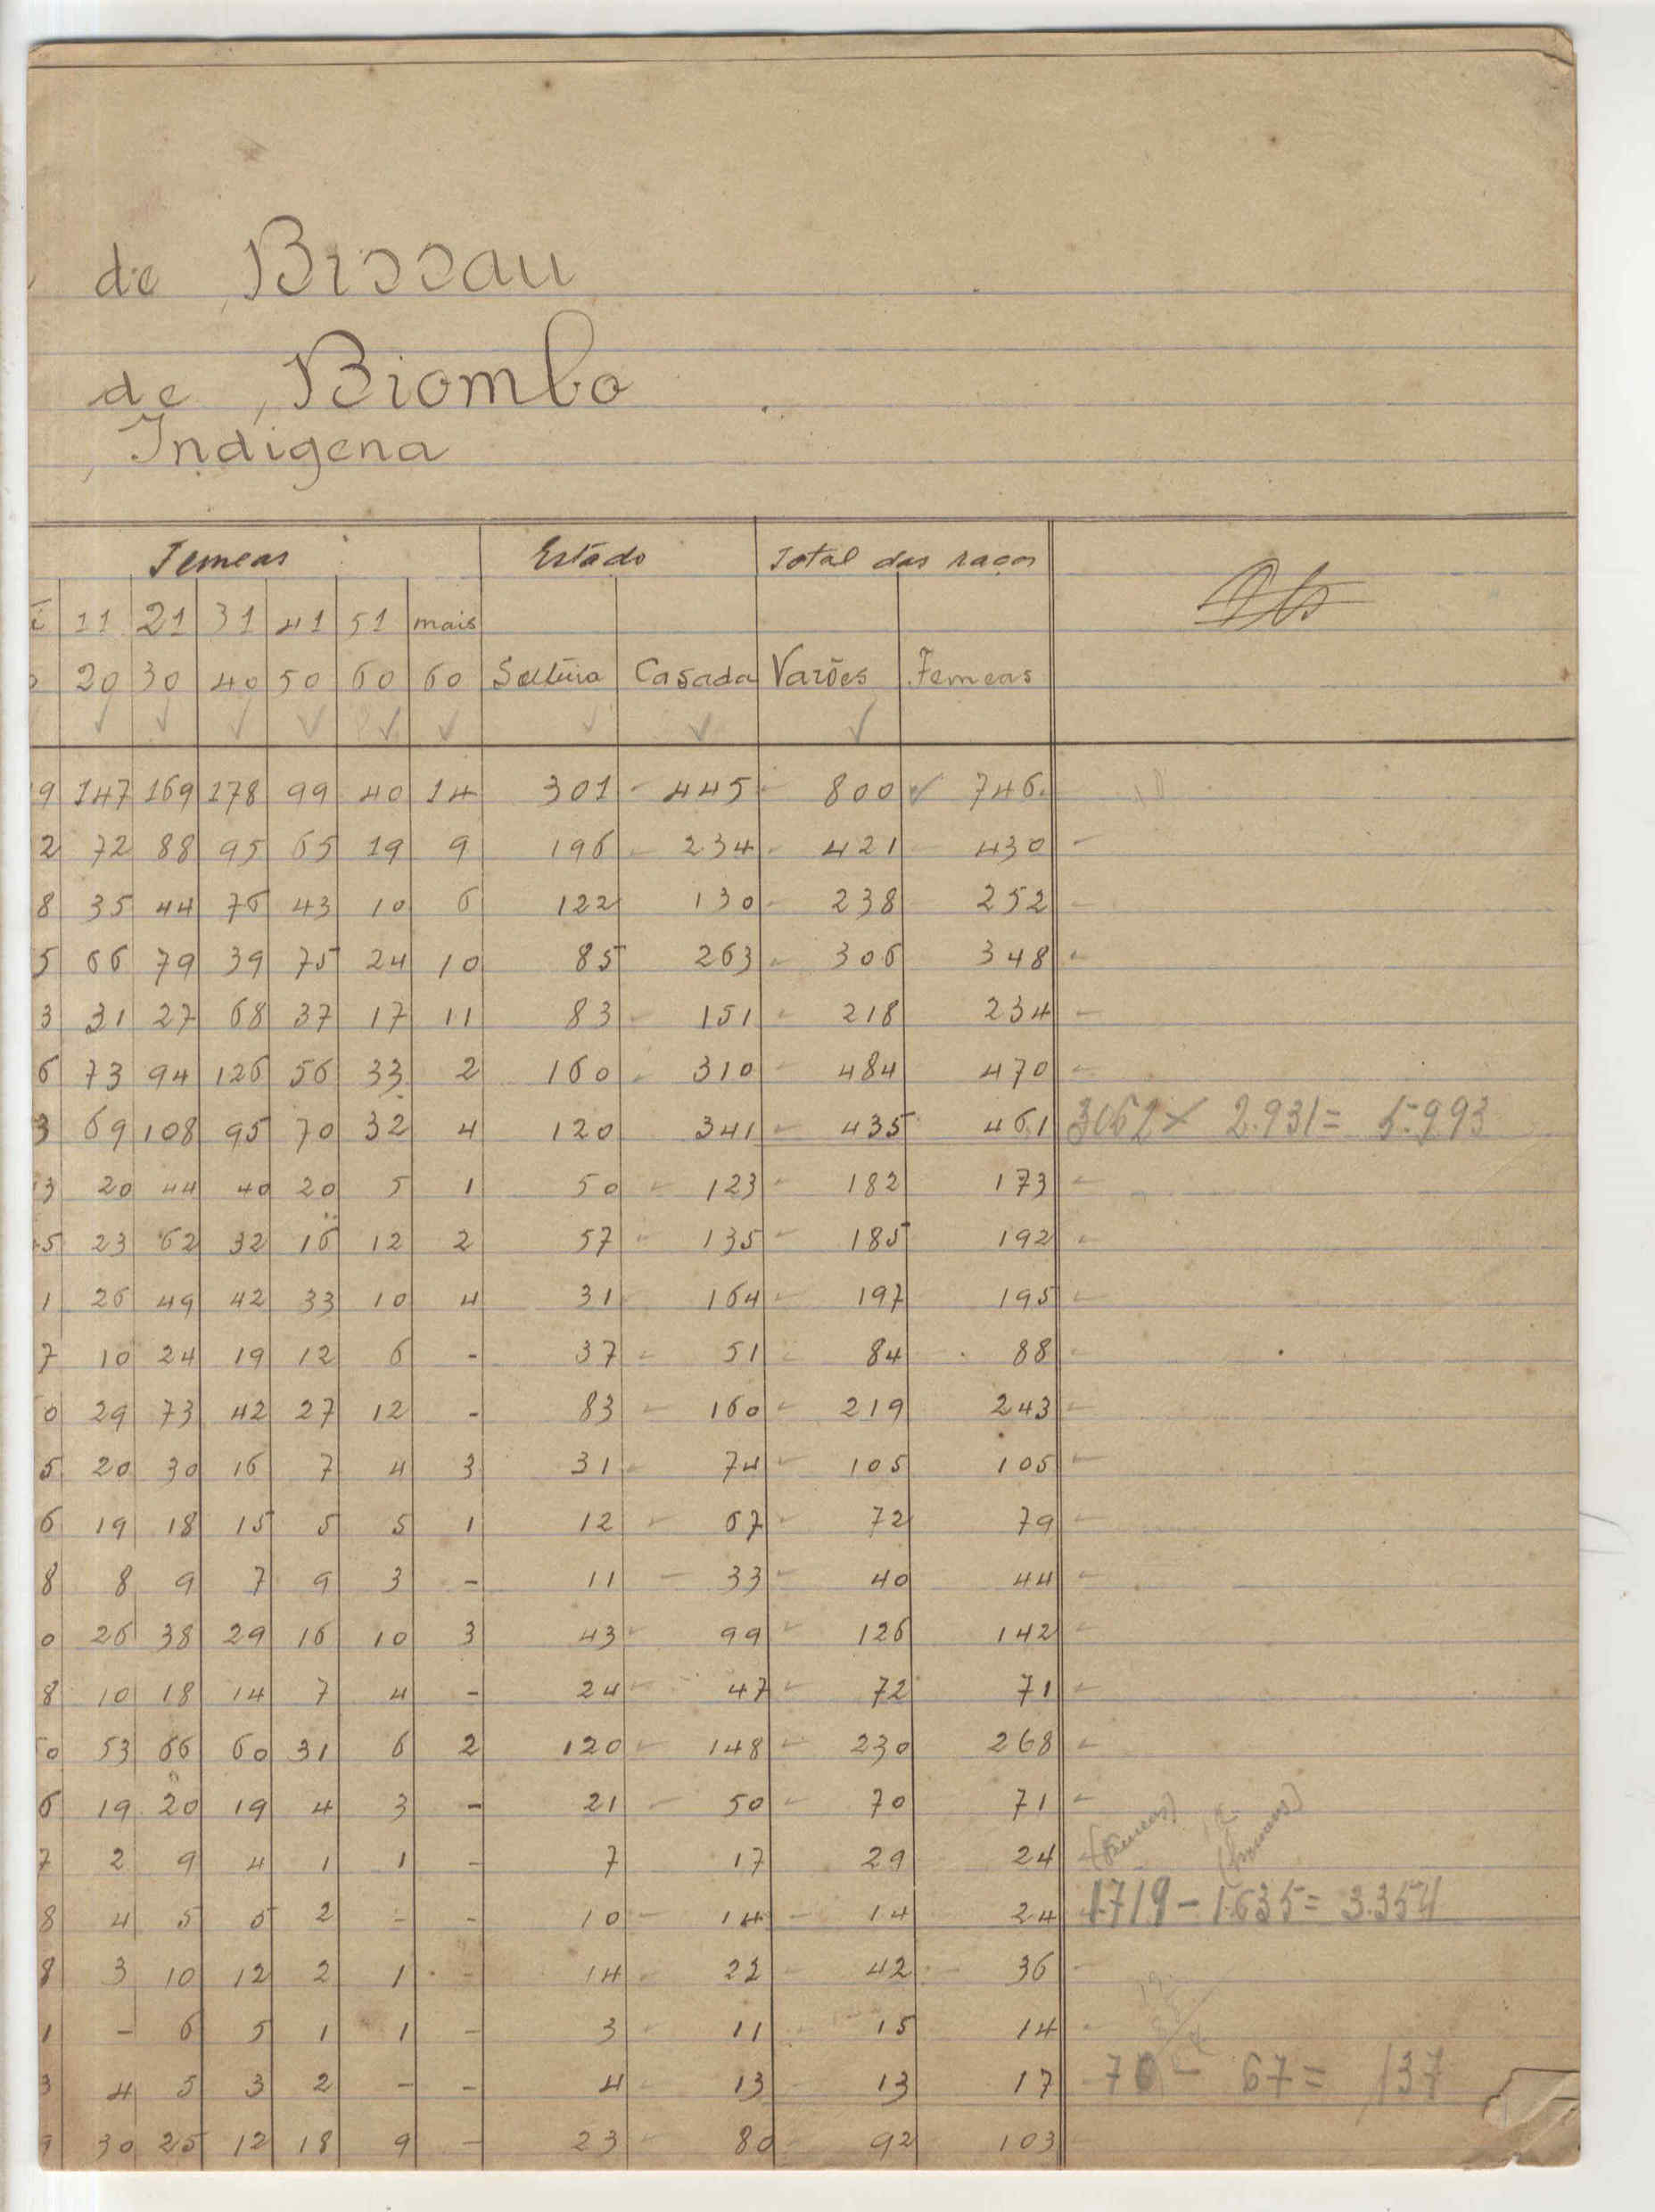 de Bissau
de Biombo
Indigena
Femeas Estado Total das raças
11 21 31 41 51 mais
20 30 40 50 60 60 Solteiro Casada Varões Femeas
9 147 169 178 99 40 14 301 - 445 - 800 746
2 72 88 95 65 19 9 196 - 234 - 421 - 430 -
8 35 44 76 43 10 6 122 130 - 238 252 -
5 66 79 39 75 24 10 85 263 - 306 348 -
3 31 27 68 37 17 11 83 - 151 - 218 234 -
6 73 94 126 56 33 2 160 - 310 - 484 470 -
3 69 108 95 70 32 4 120 341 - 435 461 3062 × 2.931 = 5.993
3 20 44 40 20 5 1 50 - 123 - 182 173 -
5 23 62 32 16 12 2 57 - 135 - 185 192 -
1 26 49 42 33 10 4 31 164 - 197 195 -
7 10 24 19 12 6 - 37 - 51 - 84 - 88 -
0 29 73 42 27 12 - 83 - 160 - 219 243 -
5 20 30 16 7 4 3 31 - 74 - 105 105 -
6 19 18 15 5 5 1 12 - 67 - 72 79 -
8 8 9 7 9 3 - 11 - 33 - 40 44 -
0 26 38 29 16 10 3 43 - 99 - 126 142 -
8 10 18 14 7 4 - 24 - 47 - 72 71 -
0 53 66 60 31 6 2 120 - 148 - 230 268 -
6 19 20 19 4 3 - 21 - 50 - 70 71 -
7 2 9 4 1 1 - 7 17 29 24 (Femeas)
8 4 5 5 2 - - 10 - 14 - 14 24 1.719 - 1.635 = 3.354
8 3 10 12 2 1 - 14 - 22 - 42 - 36 -
1 - 6 5 1 1 - 3 - 11 - 15 14 -
3 4 5 3 2 - - 4 - 13 - 13 17 70 - 67 = 137
9 30 25 12 18 9 - 23 - 80 - 92 103